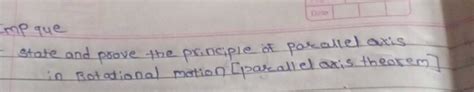 Imp que
- state and prove the principle of parallel axis
in Rotational motion [parallel axis theorem]